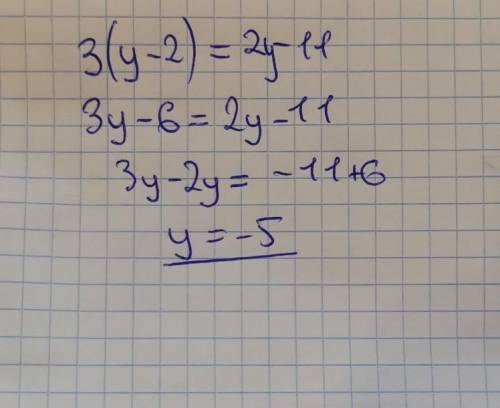 3(y-2) = 2y-11
3y-6 = 2y-11
3y-2y = -11+6
y = -5